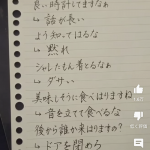 良い時計してますなぁ
↳ 話が長い
よう知ってはるな
↳ 黙れ
シャレたもん着とるなぁ
↳ ダサい
美味しそうに食べはりますね
↳ 音を立てて食べるな
後から誰か来はりますの?
↳ ドアを閉めろ